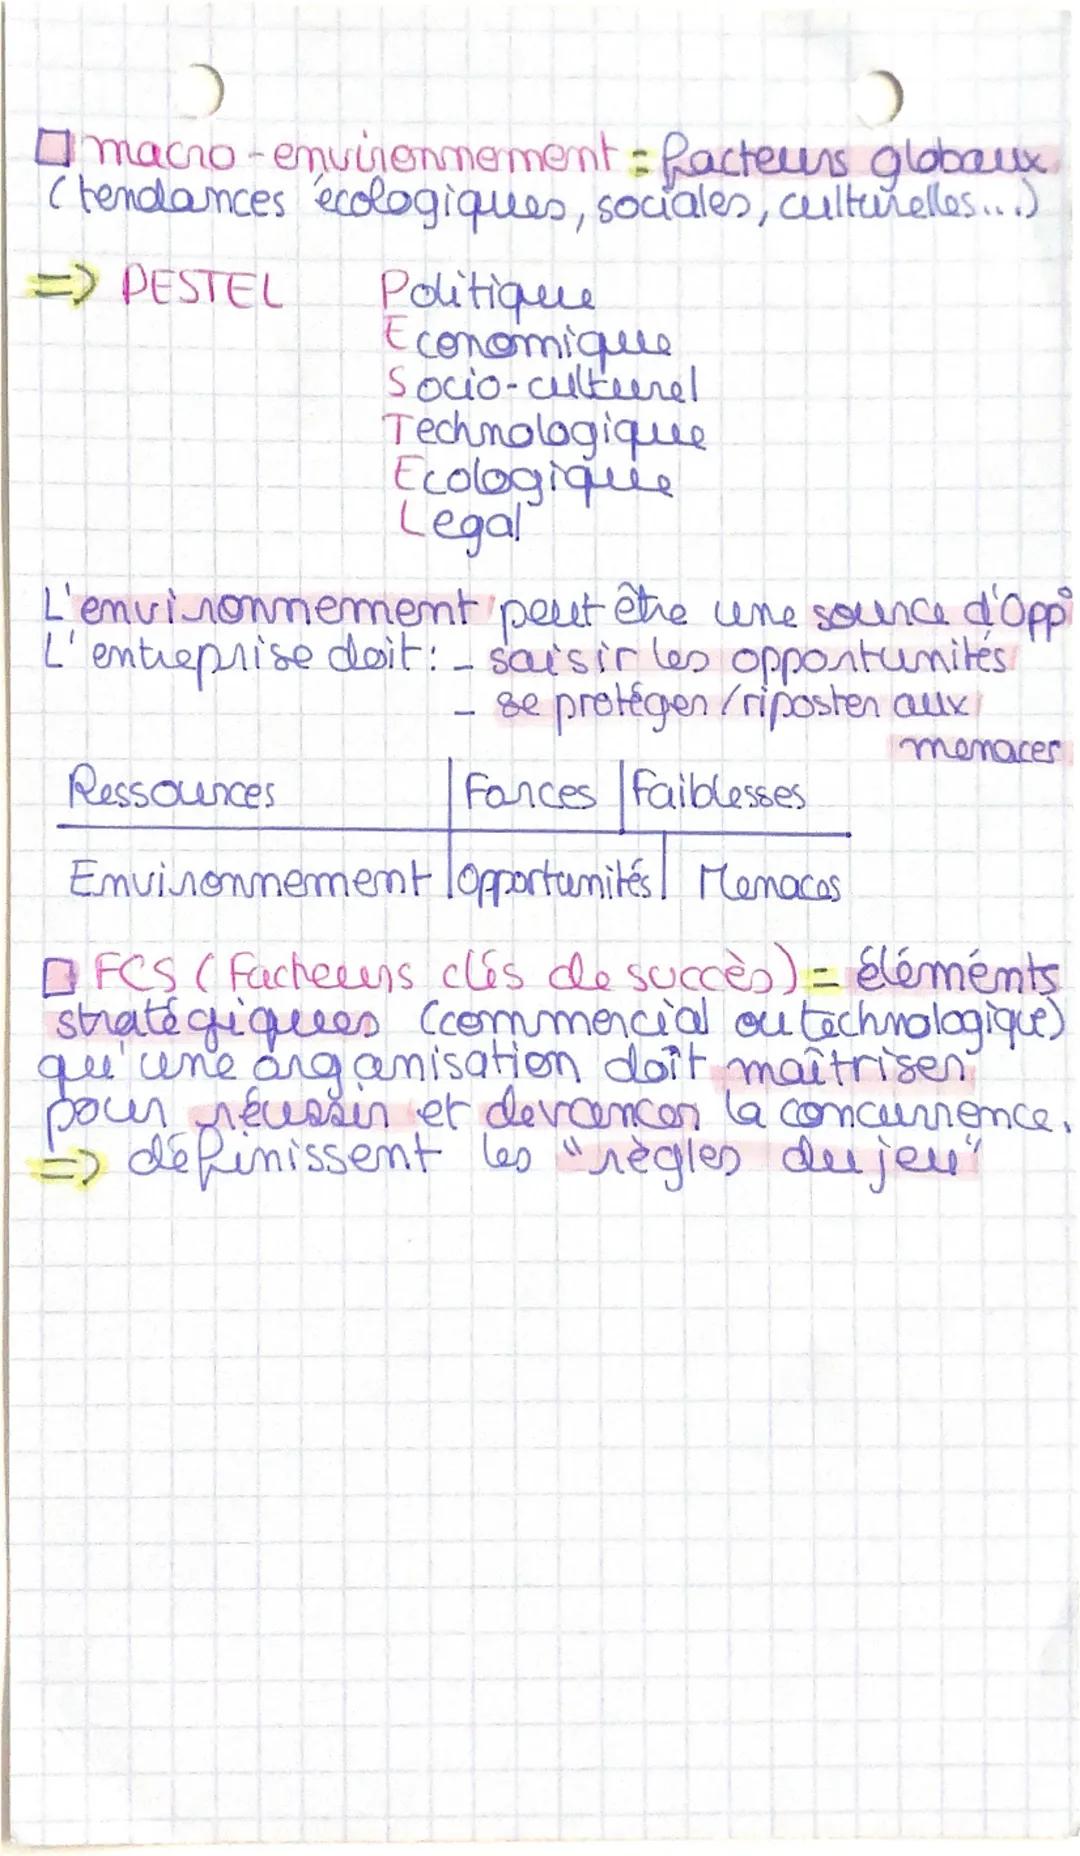 macro-environnement = facteurs globaux
(tendances écologiques, sociales, culturelles...)
=> PESTEL Politique
Economique
Socio-culturel
Technologique
Ecologique
Legal
L'environnement peut être une source d'Opp°
L'entreprise doit : - saisir les opportunités
- se protéger / riposter aux
menaces
Ressources | Forces | Faiblesses
Environnement | Opportunités | Menaces
FCS (Facteurs clés de succès) = éléments
stratégiques (commercial ou technologique)
qu'une organisation doit maîtriser
pour réussir et devancer la concurrence.
=> définissent les "règles du jeu"